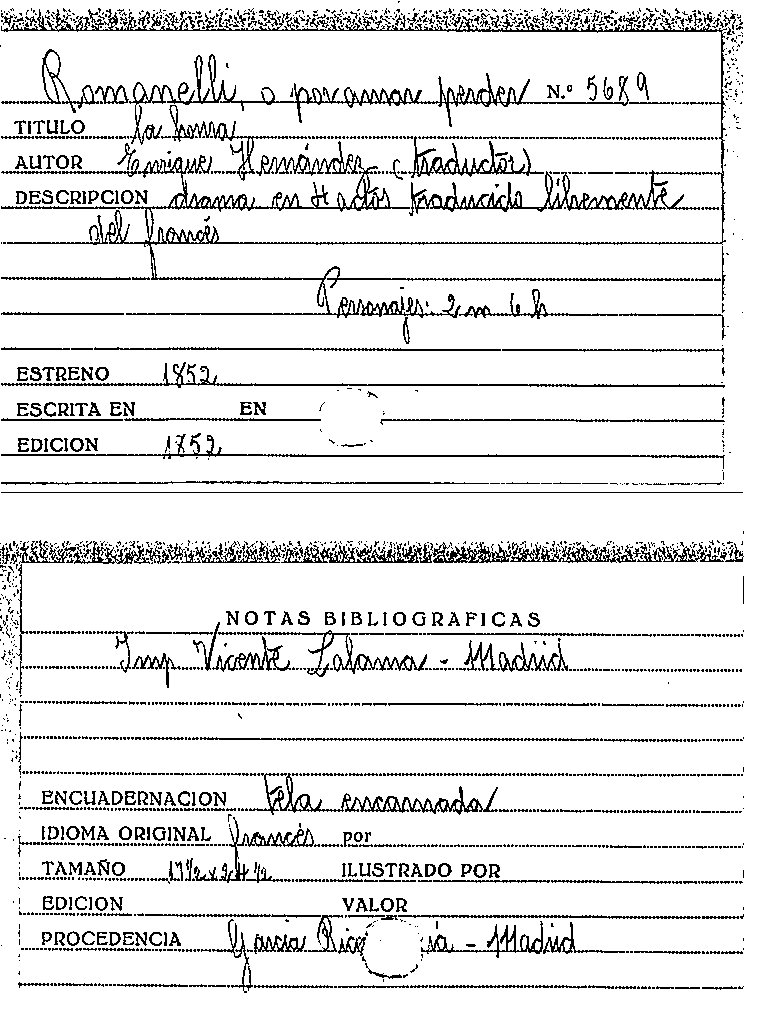 Romanelli, o por amar perder N.º 5689
TITULO la honra
AUTOR Enrique Hernández (traductor)
DESCRIPCION drama en 4 actos traducido libremente
del francés
Personajes: 2 m 6 h
ESTRENO 1852
ESCRITA EN EN
EDICION 1852
NOTAS BIBLIOGRAFICAS
Imp Vicente Lalama - Madrid
ENCUADERNACION tela encarnada
IDIOMA ORIGINAL francés por
TAMAÑO 17 1/2 x 24 1/2 ILUSTRADO POR
EDICION VALOR
PROCEDENCIA García Rico - Madrid